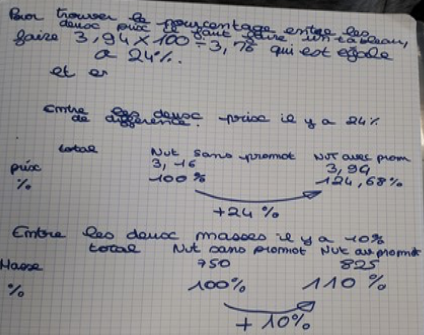 Pour trouver le pourcentage entre les
deux prix il faut faire un tableau,
faire 3,94 × 100 ÷ 3,16 qui est égale
a 24%.
et er
Entre les deux prix il y a 24%
de différence.
total Nut sans promot Nut avec prom
prix 3,16 3,94
% 100% 124,68%
+24 %
Entre les deux masses il y a 10%
total Nut sans promot Nut av promot
Masse 750 825
% 100% 110 %
+ 10%